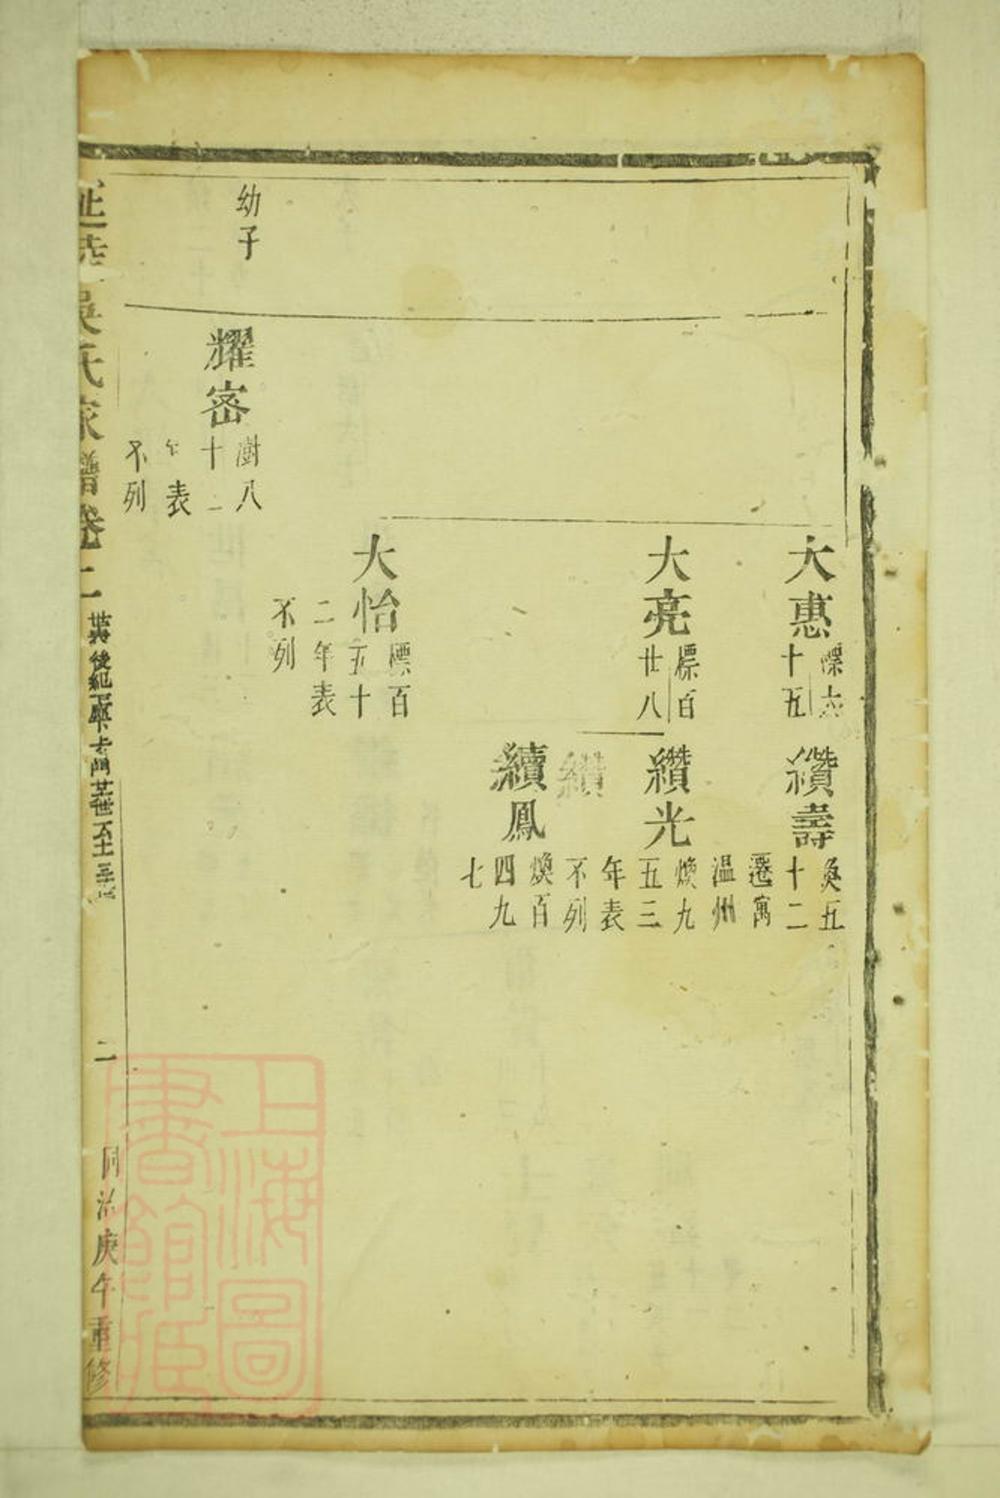 幼子
大惠
十五
纘壽
十二
遷寓
温州
大亮
標百
廿八
纘光
煥九
五三
年表
不列
續鳳
煥百
四九
七
大怡
標百
五十
二年表
不列
耀密
澍八
十二
年表
不列
吳氏家譜卷二
二
同治庚午重修
上海圖書館藏